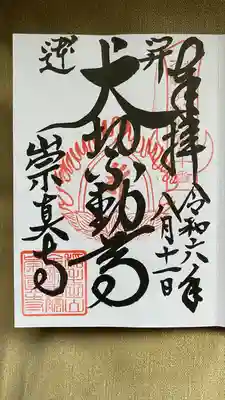 奉拝
令和六年
八月十一日
昇
大切不動尊
運
崇真寺